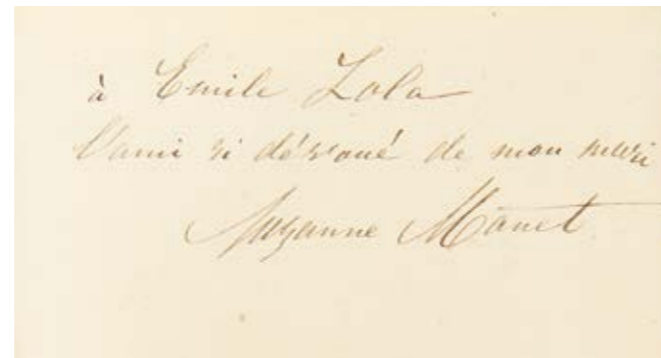 à Emile Zola
l'ami si dévoué de mon mari
Suzanne Manet